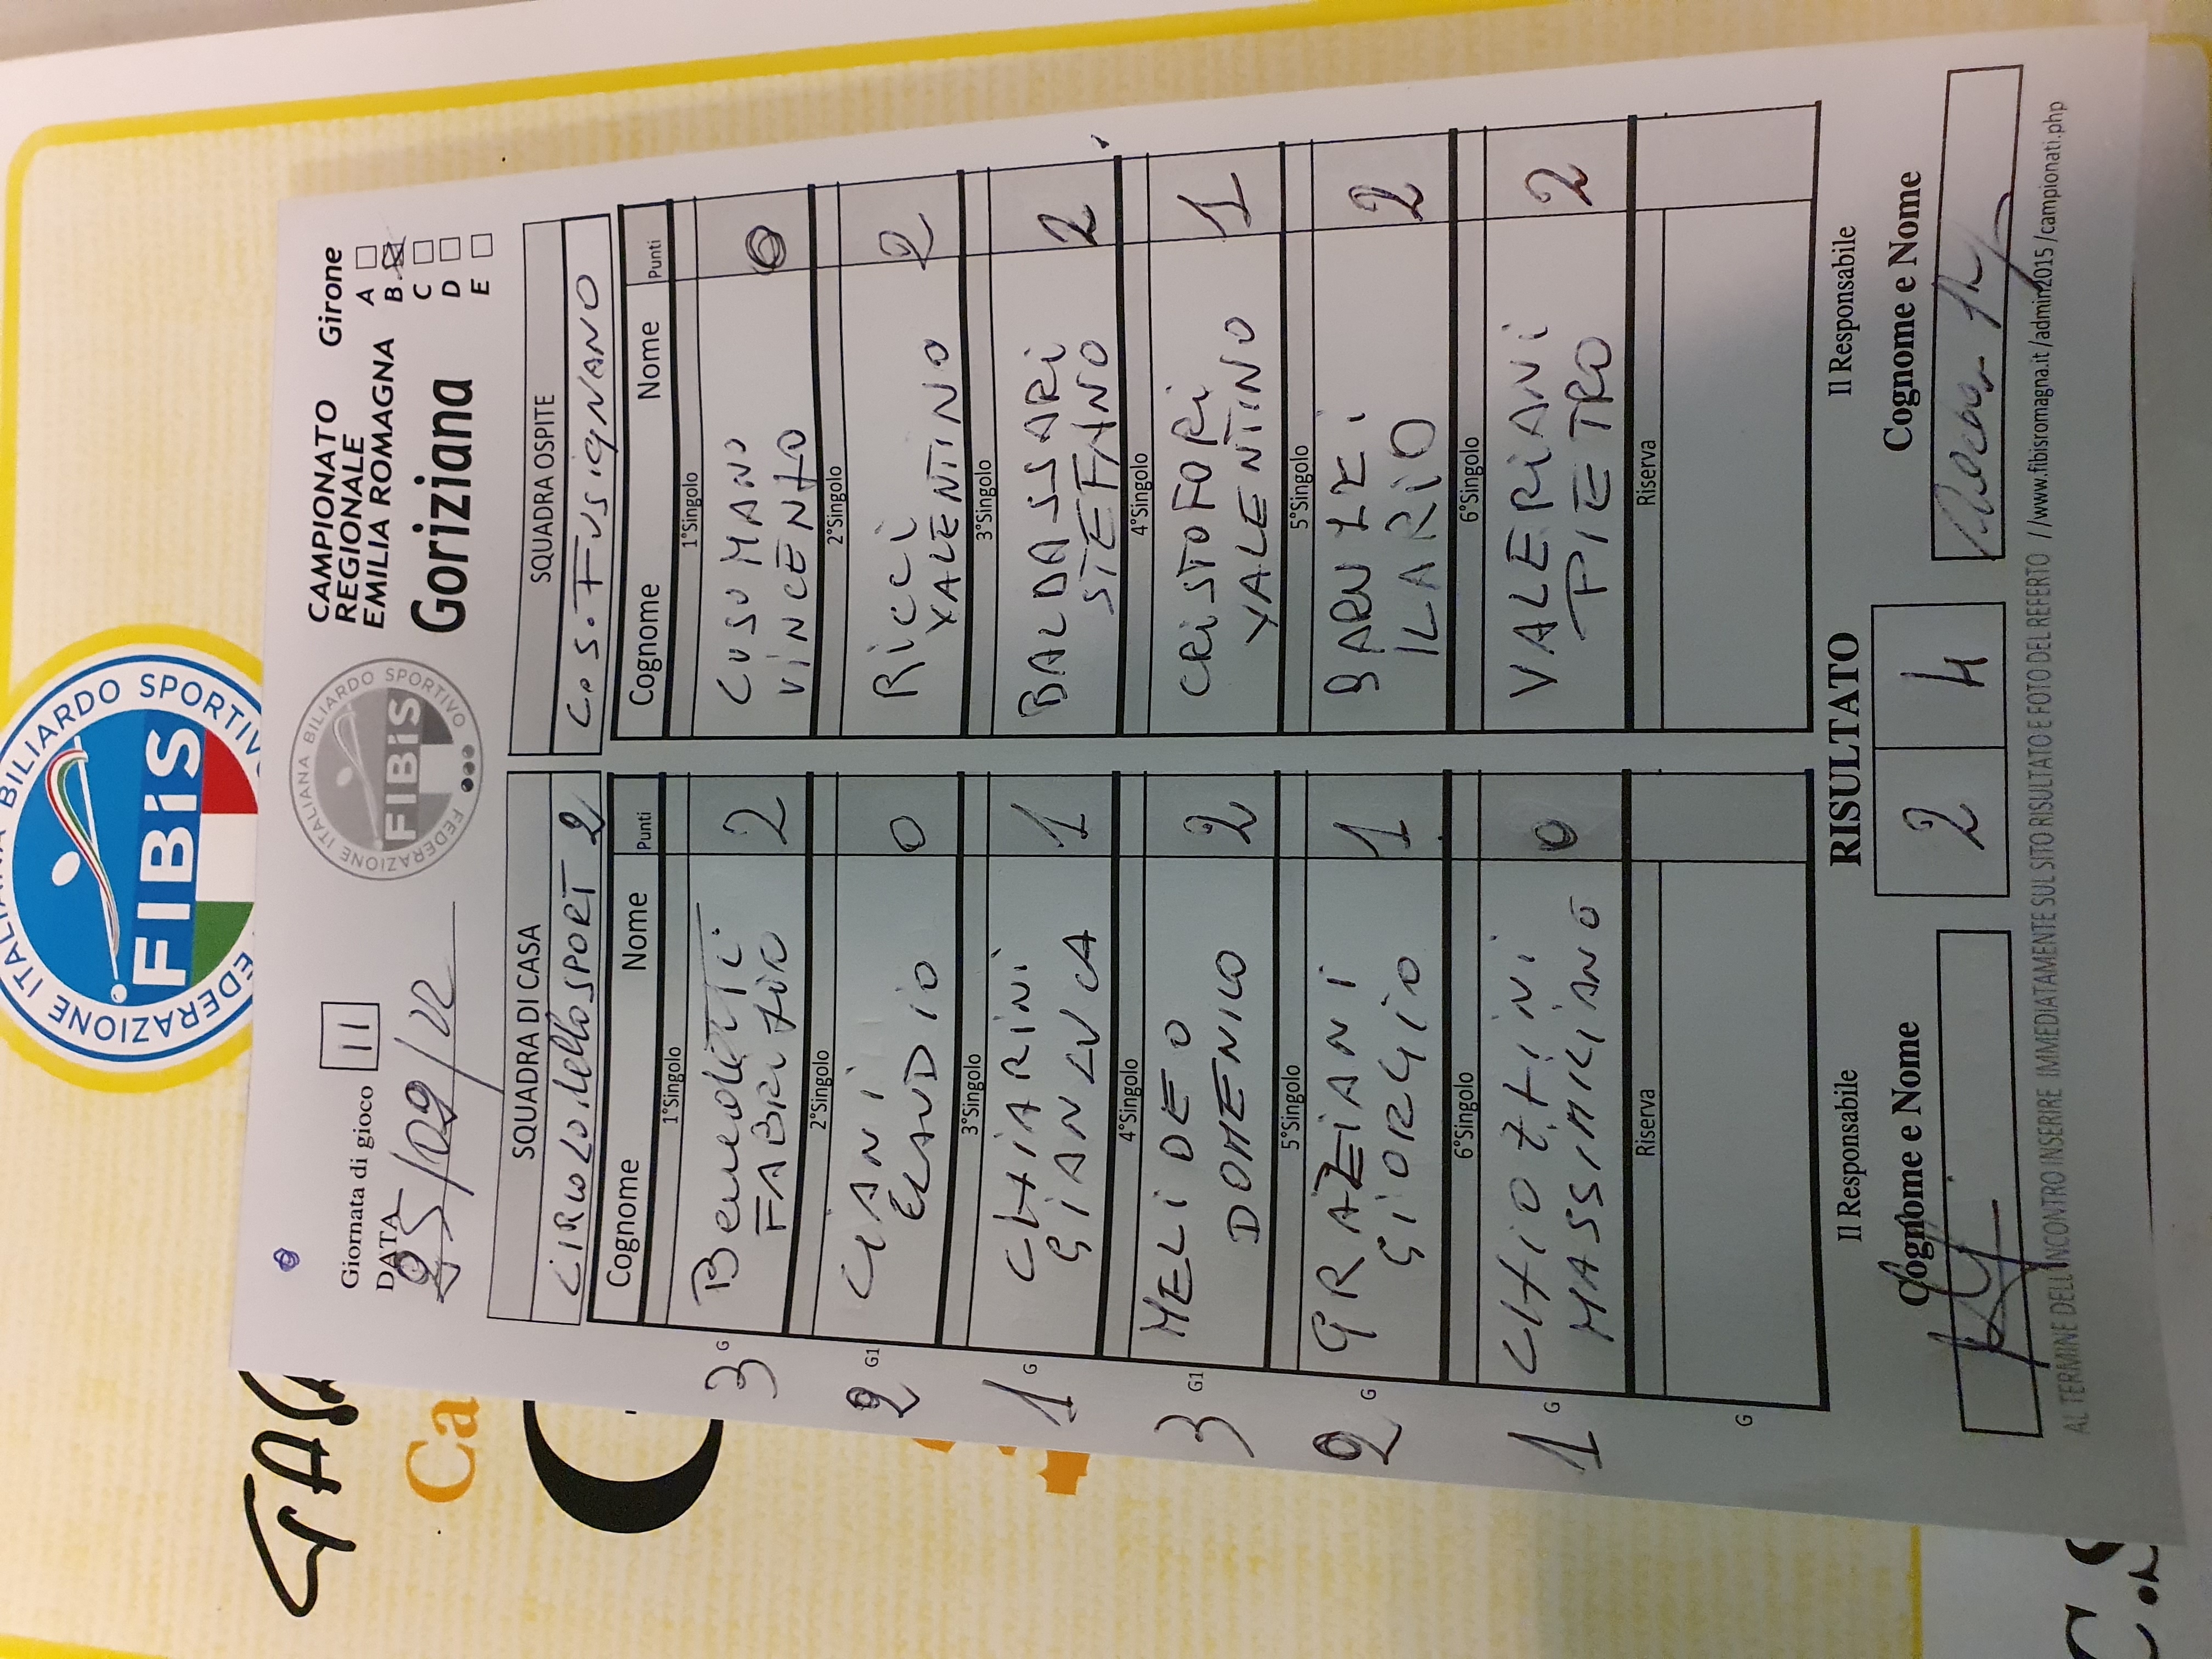 FEDERAZIONE ITALIANA BILIARDO SPORTIVO
FIBiS
Giornata di gioco 11
DATA
25/09/22
FEDERAZIONE ITALIANA BILIARDO SPORTIVO
FIBiS
CAMPIONATO
REGIONALE
EMILIA ROMAGNA
Goriziana
Girone
A
B
C
D
E
SQUADRA DI CASA
CIRCOLO dello SPORT 2
Cognome Nome Punti
1°Singolo
3 G Benedetti 2
FABRIZIO
2°Singolo
2 G1 CIANI 0
CLAUDIO
3°Singolo
1 G CHIARINI 1
GIANLUCA
4°Singolo
3 G1 MELIDEO 2
DOMENICO
5°Singolo
2 G GRAZIANI 1
GIORGIO
6°Singolo
1 G CHIOZZINI 0
MASSIMILIANO
Riserva
G
SQUADRA OSPITE
C.S. FUSIGNANO
Cognome Nome Punti
1°Singolo
CUSUMANO 0
VINCENZO
2°Singolo
RICCI 2
VALENTINO
3°Singolo
BALDASSARI 2
STEFANO
4°Singolo
CRISTOFORI 1
VALENTINO
5°Singolo
2
ILARIO
6°Singolo
VALERIANI 2
PIETRO
Riserva
Il Responsabile
Cognome e Nome
RISULTATO
2 4
Il Responsabile
Cognome e Nome
AL TERMINE DELL'INCONTRO INSERIRE IMMEDIATAMENTE SUL SITO RISULTATO E FOTO DEL REFERTO //www.fibisromagna.it/admin2015/campionati.php
Ca